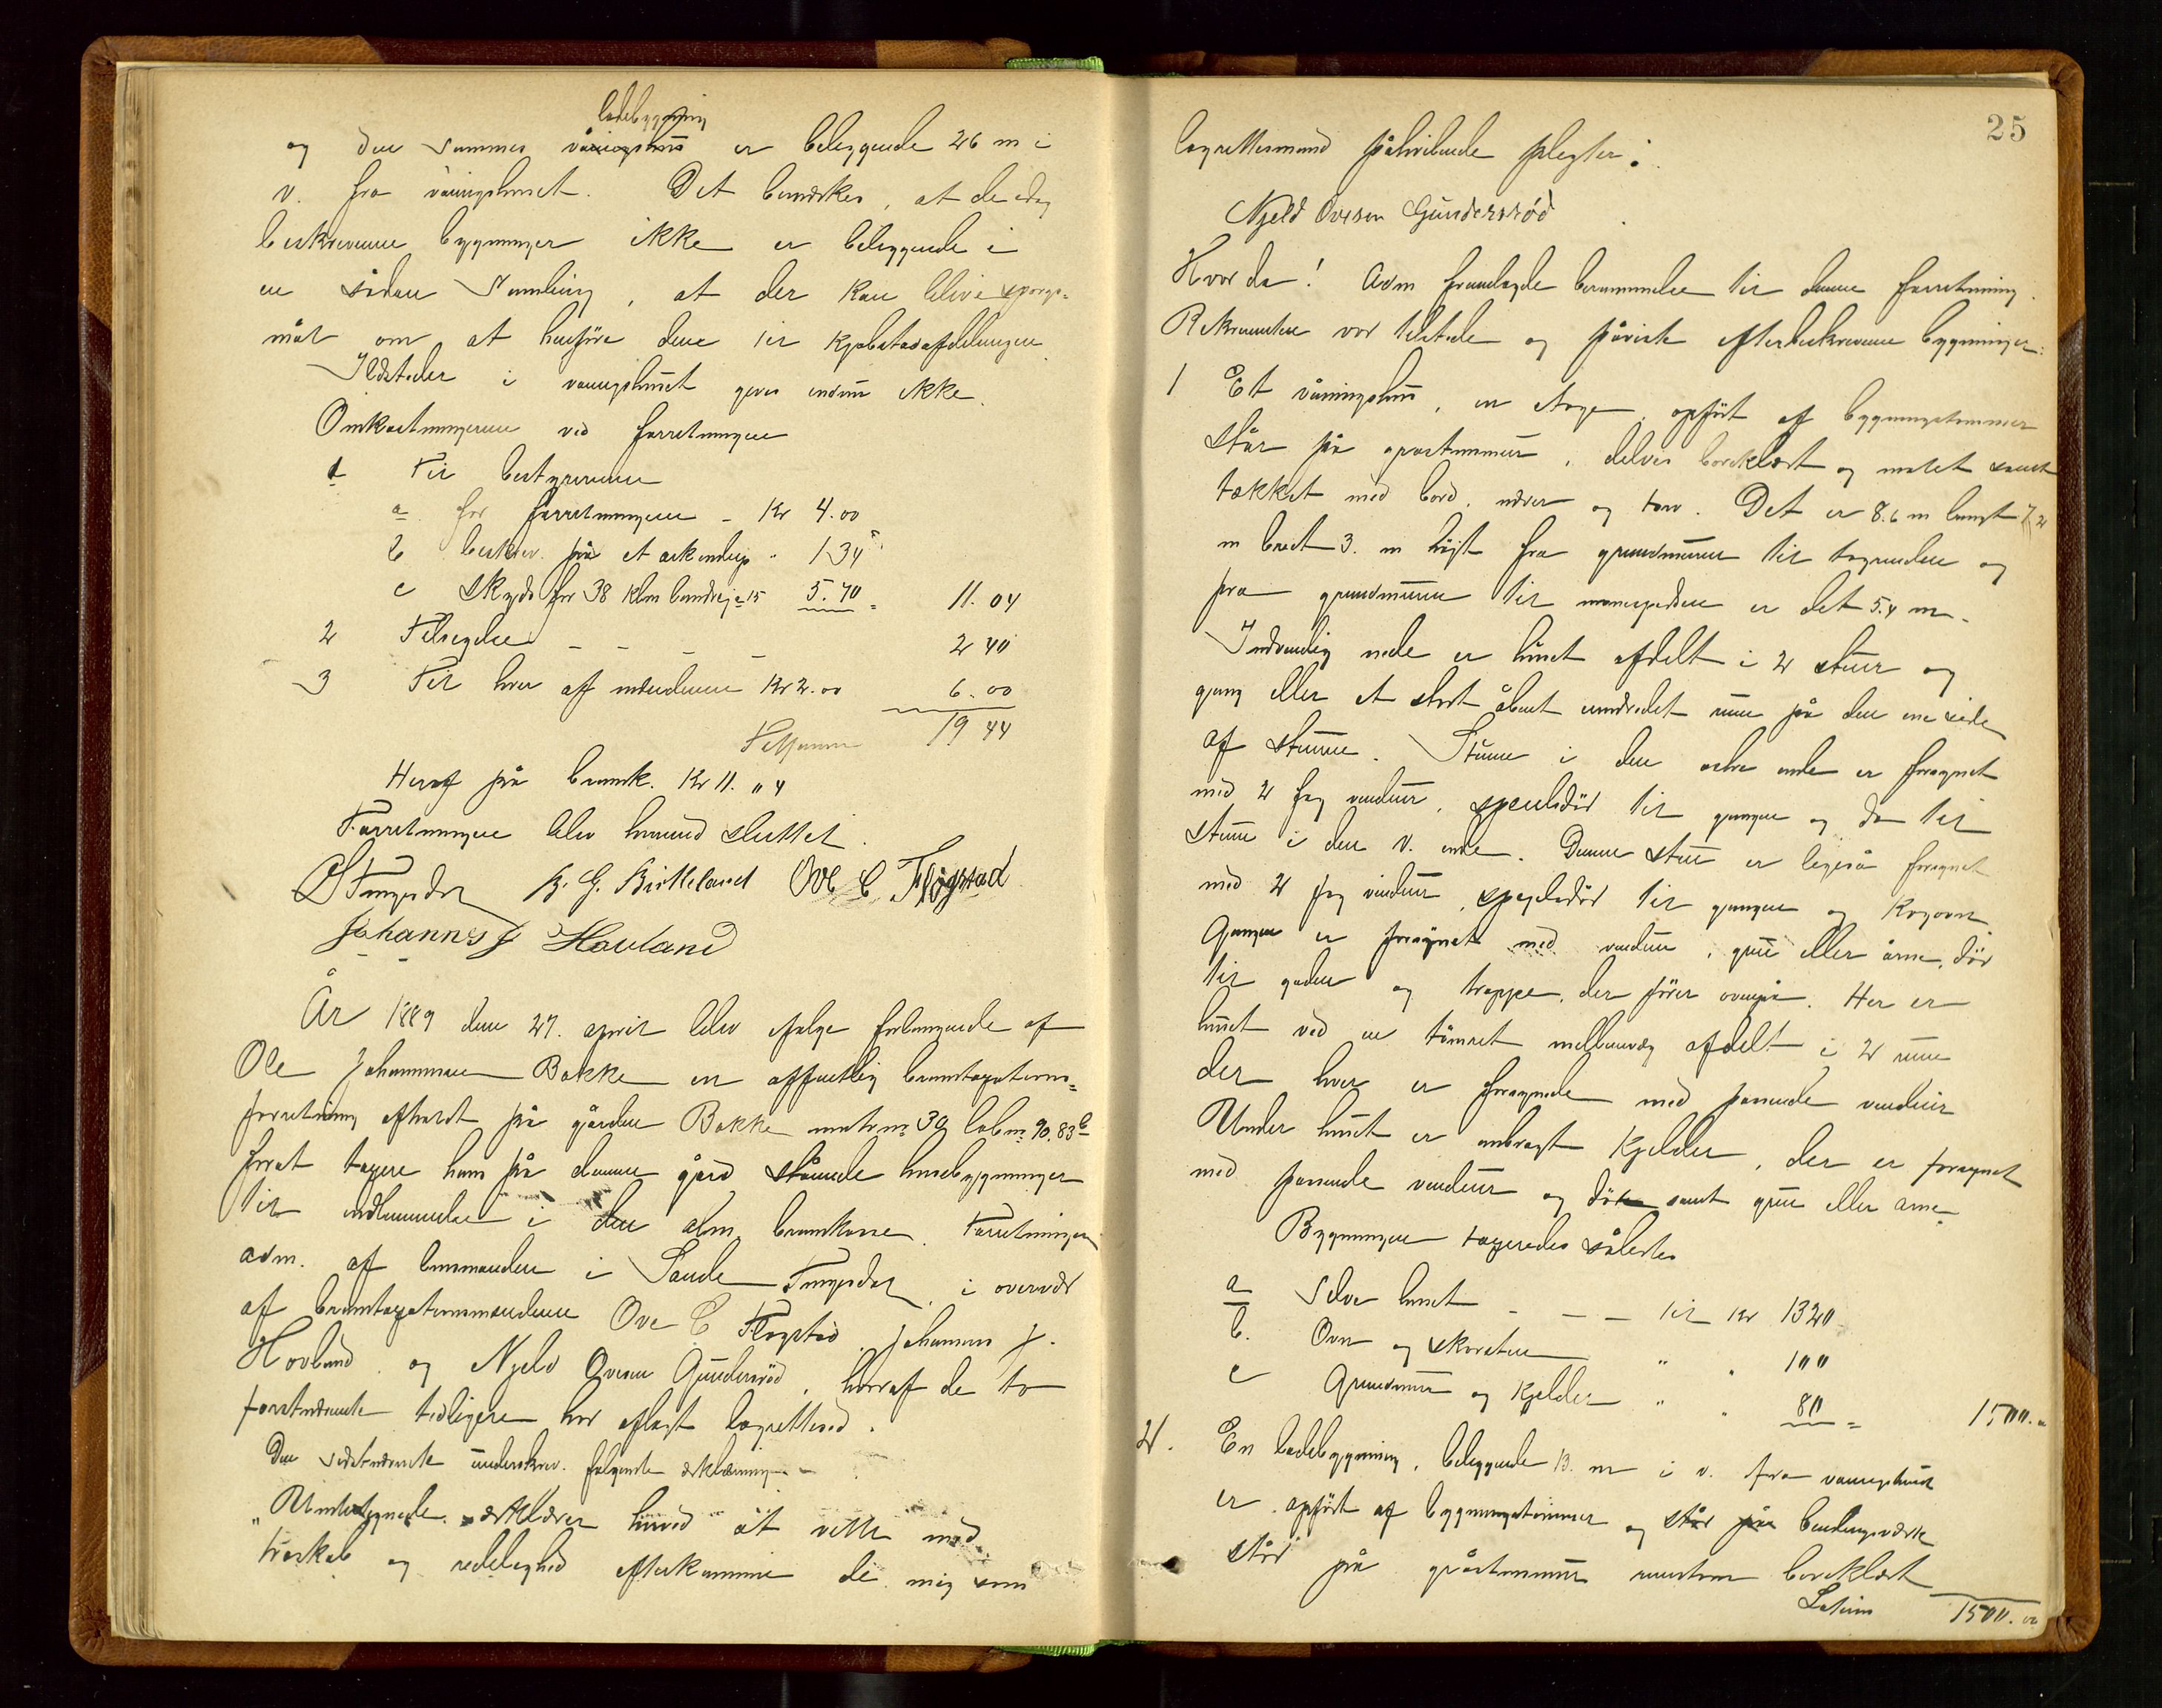 ladebygning
og den sammes våningshus er beliggende 26 m i
v. fra våningshuset. Det bemærkes, at de idag
beskrevne bygninger ikke er beliggende i
en sådan samling, at der kan blive spørgs-
mål om at henføre dem til kjøbstadafdelingen
Ildsteder i vaaningshuset gives endnu ikke.
Omkostningerne ved forretningen
1 Til bestyreren
a for forretningen - Kr 4.00
b beskriv. på et ark " 1 34
c Skyds for 38 Klm landvej a 15 5.70 = 11.04
2 Tilsigelse - - - - 2 40
3 Til hver af mændene Kr 2.00 6.00
Tilsammen 19 44
Heraf på brandk. Kr 11. 04
Forretningen blev hermed sluttet.
B. G. Birkeland Ove C. Fløgstad
Johannes J Hovland
År 1889 den 27. april blev ifølge forlangende af
Ole Johannesen Bakke en offentlig brandtaxations-
forretning afholdt på gården Bakke matr no 39 løbno 90.83b
forat taxere ham på denne gård stående husebygninger
til indlemmelse i den alm. brandkasse. Forretningen
adm. af lensmanden i Saude i overvær
af brandtaxationsmændene Ove C Fløgstad, Johannes J.
Hovland og Njeld Ovesen Gundersrød, hvoraf de to
førstnævnte tidligere har aflagt lagretteed.
Den sidstnævnte underskrev følgende erklæring -
"Undertegnede erklærer herved at ville med
troskab og redelighed efterkomme de mig som
25
lagrettesmand påhvilende pligter.
Njeld Ovesen Gundersrød
Hvorda! Adm fremlagde berammelse til denne forretning.
Rekvirenten var tilstede og påviste efterbeskrevne bygninger:
1 Et våningshus, en etage, opført af bygningstømmer
står på gråstensmur, delvis bordklædt og malet samt
tækket med bord, næver og torv. Det er 8.6 m langt 7,2
m bredt 3. m højt fra grundmuren til tagrenden og
fra grundmuren til mønespidsen er det 5.4 m.
Indvendig nede er huset afdelt i 2 stuer og
gang eller et stort åbent uindredet rum på den ene side
af stuerne. Stuen i den østre ende er forsynet
med 2 fag vinduer, speilsdør til gangen og do til
stuen i den v. ende. Denne stue er ligeså forsynet
med 2 fag vinduer, spejlsdør til gangen og kogovn.
Gangen er forsynet med vinduer, grue eller arne, dør
til gaden og trappe, der fører ovenpå. Her er
huset ved en tømret mellemvæg afdelt i 2 rum
der hver er forsynede med passende vinduer
Under huset er anbragt Kjelder, der er forsynet
med passende vinduer og dör samt grue eller arne.
Bygningen taxeredes således
a Selve huset - - - til Kr 1320
b. Ovn og skorsten " " 100
c Grundmur og Kjelder " " 80 = 1500.00
2. En ladebygning, beliggende 13. m i v. fra vaaningshuset
er opført af bygningstømmer og står på bindingsværk
står på gråstensmur bordklædt
Latus 1500.00